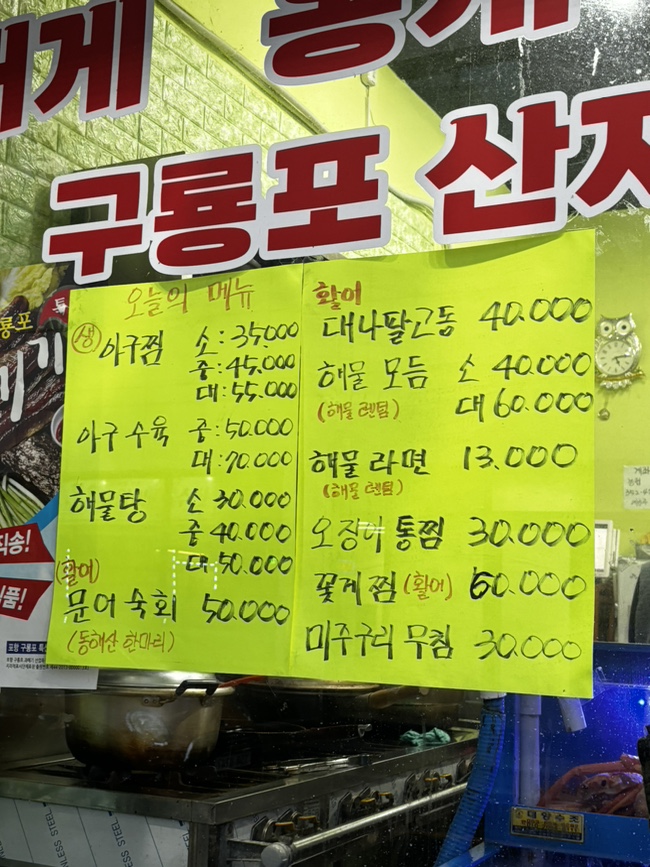 대게 홍게
구룡포 산지
오늘의 메뉴
생 아구찜 소: 35,000
중: 45,000
대: 55,000
아구수육 중: 50,000
대: 70,000
해물탕 소 30,000
중 40,000
대 50,000
(활어)
문어숙회 50,000
(동해산 한마리)
활어
대나팔고동 40.000
해물 모듬 소 40.000
(해물 렌덤) 대 60.000
해물라면 13.000
(해물 렌덤)
오징어통찜 30.000
꽃게찜 (활어) 60.000
미주구리 무침 30.000
직송!
STAINLESS STEEL
대양수조